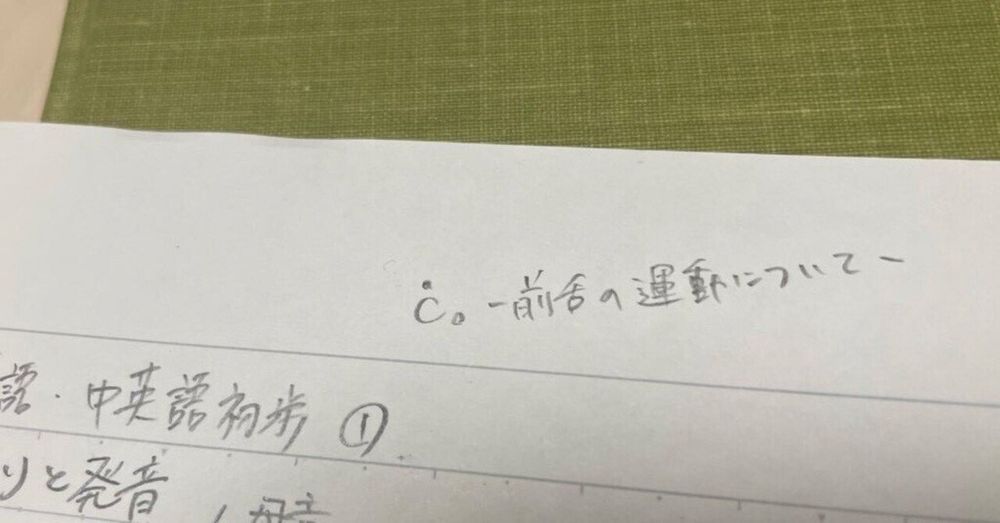 ċ。-前舌の運動について-
語・中英語初歩 ①
りと発音
母音